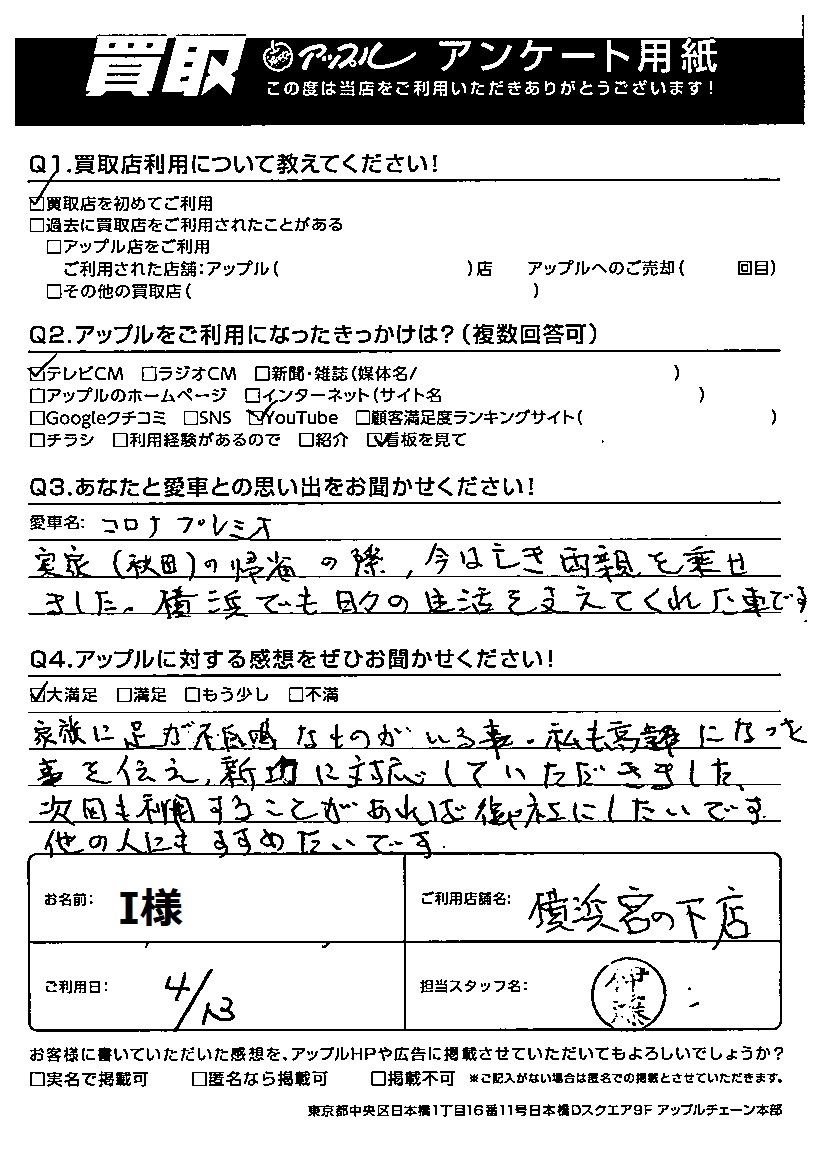 買取 アップル アンケート用紙
この度は当店をご利用いただきありがとうございます!
Q1.買取店利用について教えてください!
☑買取店を初めてご利用
□過去に買取店をご利用されたことがある
□アップル店をご利用
ご利用された店舗:アップル( )店 アップルへのご売却( 回目)
□その他の買取店( )
Q2.アップルをご利用になったきっかけは?(複数回答可)
☑テレビCM □ラジオCM □新聞・雑誌(媒体名/ )
□アップルのホームページ □インターネット(サイト名 )
□Googleクチコミ □SNS ☑YouTube □顧客満足度ランキングサイト( )
□チラシ □利用経験があるので □紹介 ☑看板を見て
Q3.あなたと愛車との思い出をお聞かせください!
愛車名: コロナプレミオ
実家(秋田)の帰省の際,今は亡き両親を乗せ
ました。横浜でも日々の生活を支えてくれた車です
Q4.アップルに対する感想をぜひお聞かせください!
☑大満足 □満足 □もう少し □不満
家族に足が不自由なものがいる事。私も高齢になった
事を伝え,親切に対応していただきました、
次回も利用することがあれば御社にしたいです
他の人にもすすめたいです
お名前: I様 ご利用店舗名: 横浜宮の下店
ご利用日: 4/13 担当スタッフ名: 伊藤
お客様に書いていただいた感想を、アップルHPや広告に掲載させていただいてもよろしいでしょうか?
□実名で掲載可 □匿名なら掲載可 □掲載不可 ※ご記入がない場合は匿名での掲載とさせていただきます。
東京都中央区日本橋1丁目16番11号日本橋Dスクエア9F アップルチェーン本部